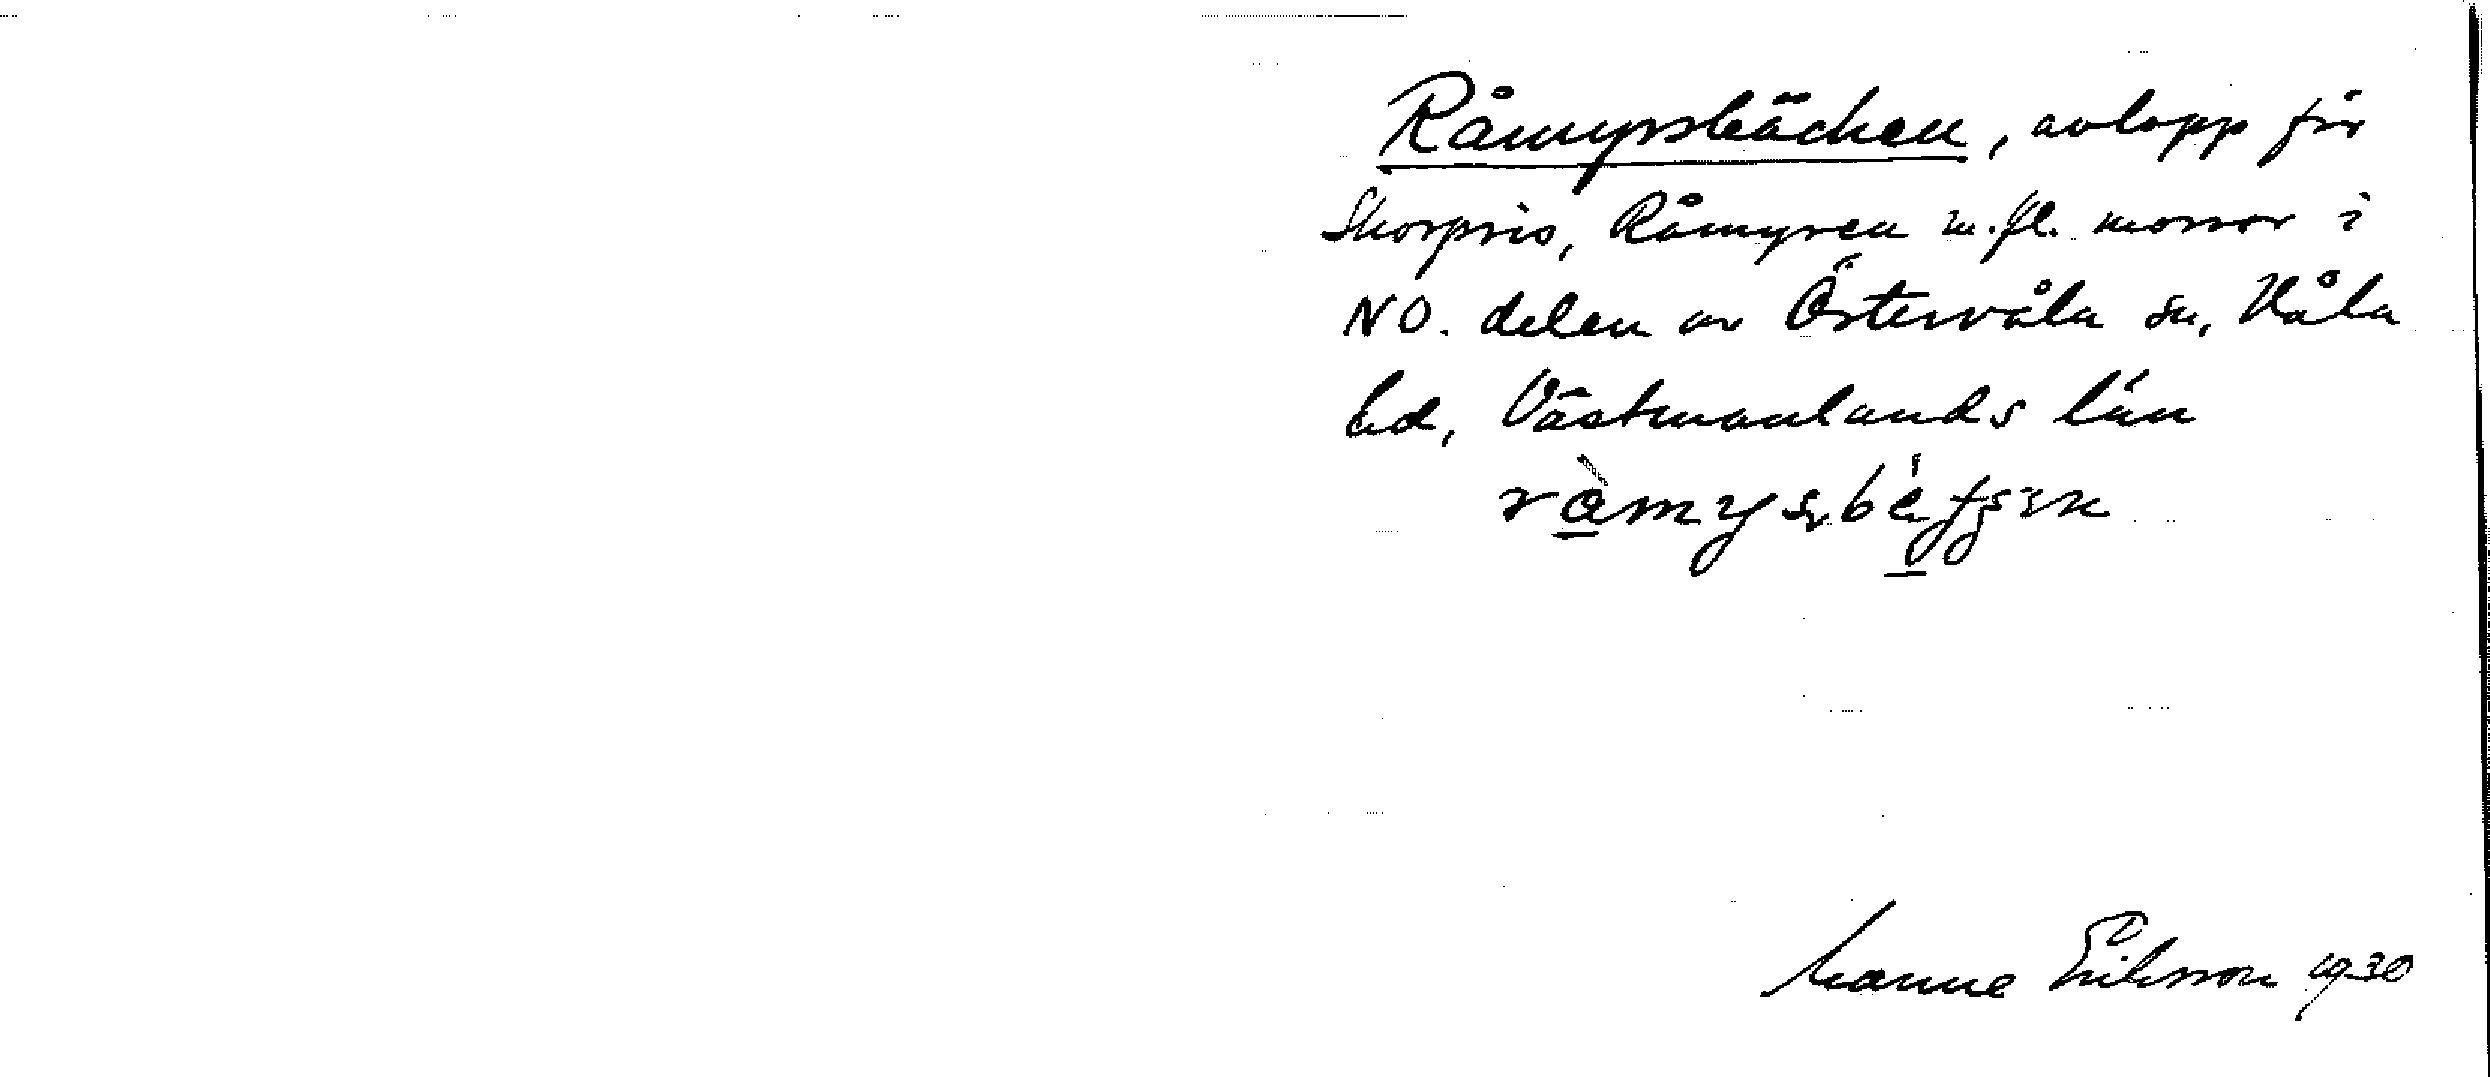 Råmyrsbäcken, avlopp för
Skorpris, Råmyren m.fl. mossar i
NO. delen av Östervåla sn, Våla
hd, Västmanlands län
Manne Eriksson 1930